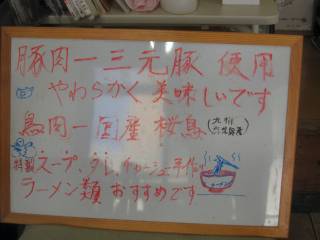 豚肉一三元豚 使用
やわらかく美味しいです
鳥肉一国産 桜鳥(九州
特製スープ、タレ、チャーシュー手作り
ラーメン類 おすすめです